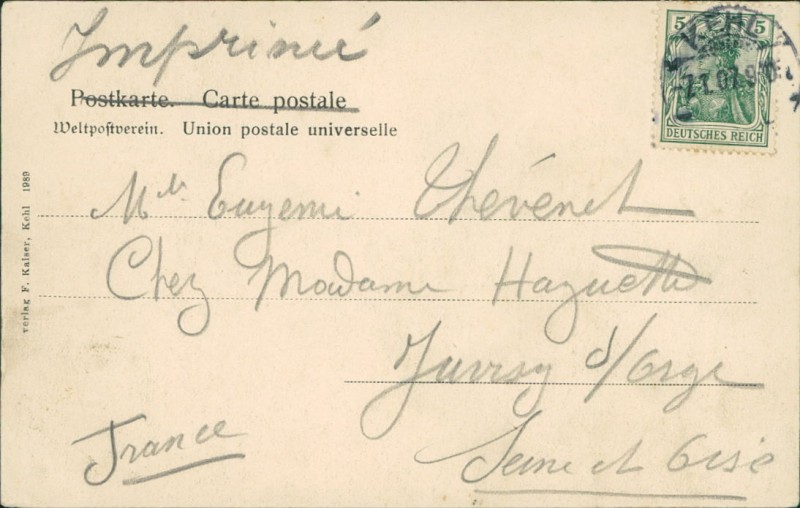 Imprimé
Postkarte. Carte postale
Weltpostverein. Union postale universelle
5 5
DEUTSCHES REICH
KEHL
7.1.07.9
Mlle Eugenie Thévenet
Chez Madame Haguette
Juvisy s/Orge
Seine et Oise
France
Verlag F. Kaiser, Kehl 1989